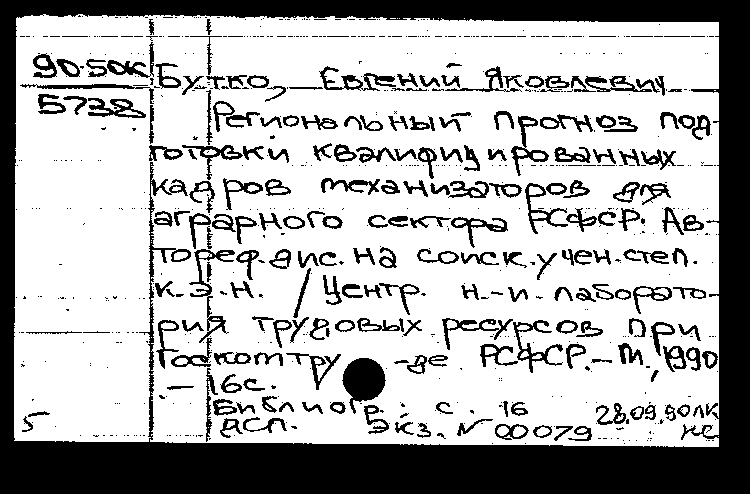 90-50К Бутко, Евгений Яковлевич
5738 Региональный прогноз под-
готовки квалифицированных
кадров механизаторов для
аграрного сектора РСФСР. Ав-
тореф. дис. на соиск. учен. степ.
к.э.н. / Центр. н.-и. лаборато-
рия трудовых ресурсов при
Госкомтру -де РСФСР. – М., 1990
. – 16с.
Библиогр.: с. 16
28.09.90ЛК
5 ДСП. Экз. № 00079 КС